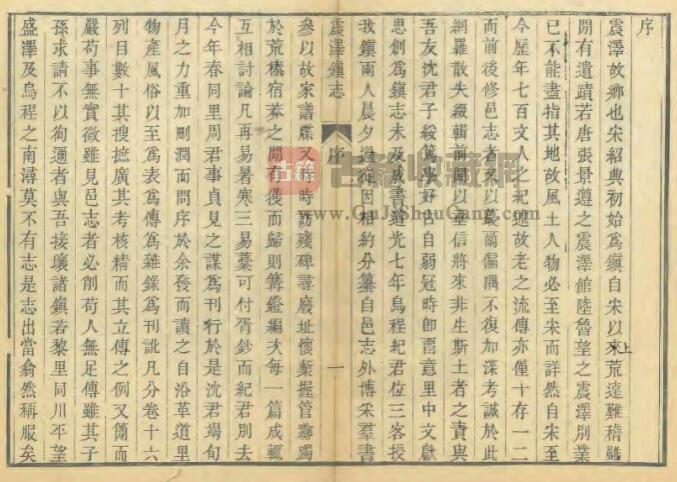 序
震澤故鄉也宋紹興初始爲鎭自宋以上來荒遠難稽雖
閒有遺蹟若唐張景遵之震澤館陸魯望之震澤別業
已不能盡指其地故風土人物必至宋而詳然自宋至
今歷年七百文人之紀述故老之流傳亦僅十存一二
而前後修邑志者又以蕞爾偏隅不復加深考誠於此
網羅散失綴輯前聞以
信將來非生斯土者之責與
吾友沈君子綏篤學好古自弱冠時卽畱意里中文獻
思創爲鎭志未及成書道光七年烏程紀君位三客授
我鎭兩人晨夕過從因相約分纂自邑志外博采羣書
震澤鎭志
序
一
參以故家譜牒又
時訪殘碑尋廢址懷槧握管躑躅
於荒榛宿莽之閒有獲而歸則篝燈編次每一篇成輒
互相討論凡再易暑寒三易藁可付胥鈔而紀君別去
今年春同里周君事貞見之謀爲刊行於是沈君竭旬
月之力重加刪潤而問序於余發而讀之自沿革道里
物產風俗以至爲表爲傳爲雜錄爲刊訛凡分卷十六
列目數十其搜摭廣其考核精而其立傳之例又簡而
嚴苟事無實徵雖見邑志者必刪苟人無足傳雖其子
孫求請不以徇邇者與吾接壤諸鎭若黎里同川平望
盛澤及烏程之南潯莫不有志是志出當翕然稱服矣
古籍
古籍收藏網
www.GuJiShouCang.com